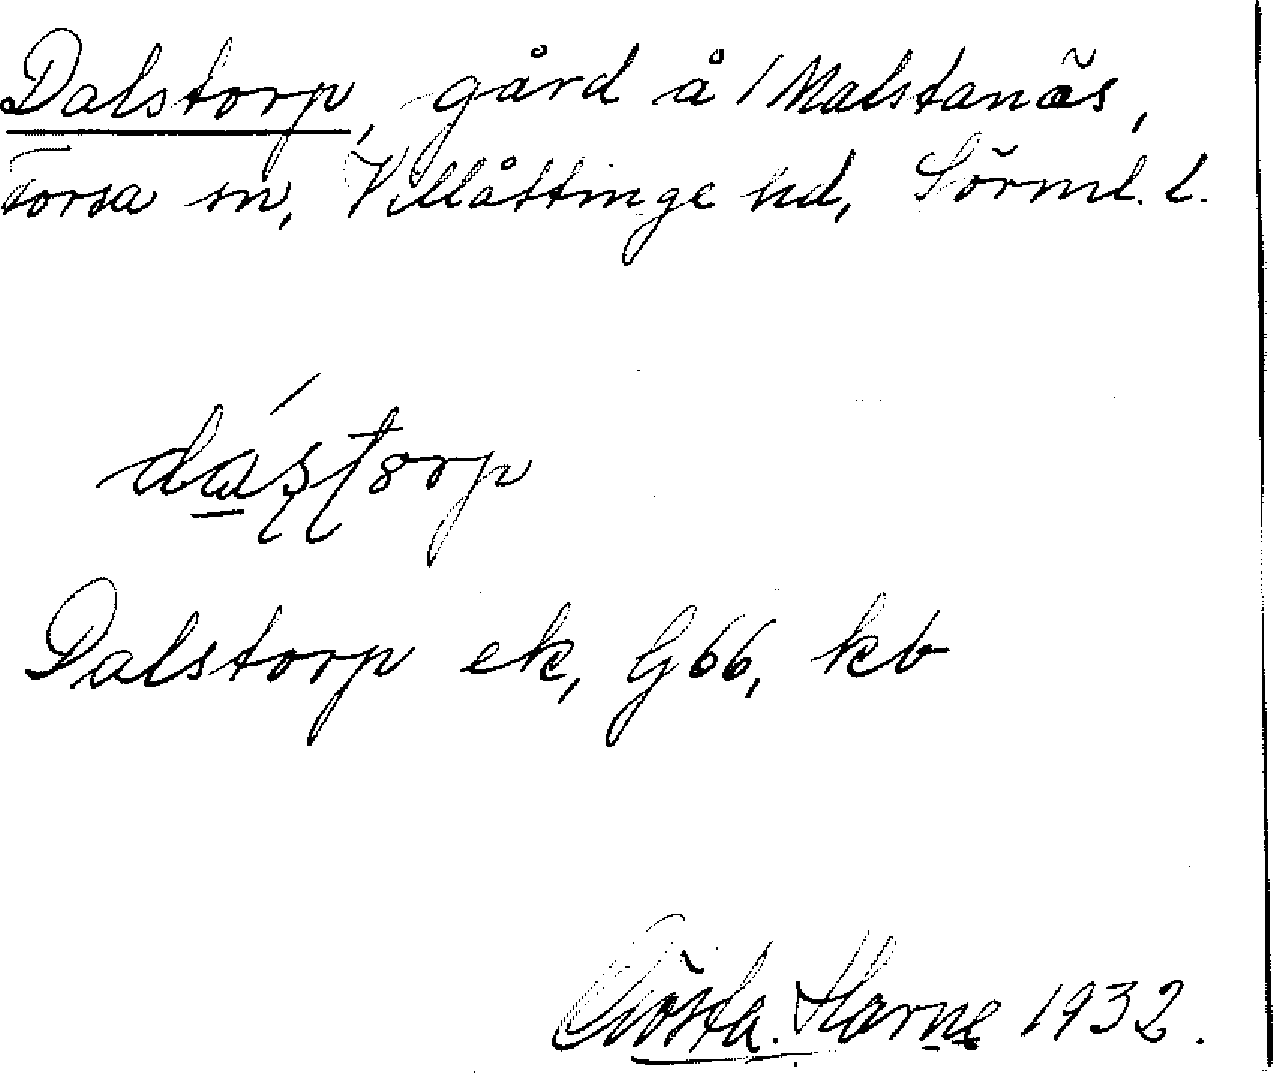 Dalstorp, gård å 1 Malstanäs,
Forsa sn, Villåttinge hd, Sörml. l.
dás̩torp
Dalstorp ek, G66, kb
Gösta. Harne 1932.